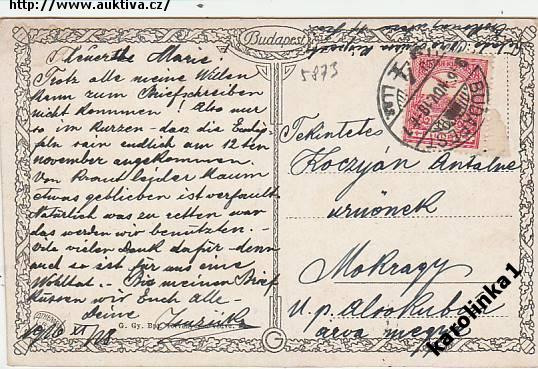 http://www.auktiva.cz/
Budapest
5873
Theuerthe Marie!
Trotz alle meine Willen
kann zum Briefschreiben
nicht kommen! Also nur
so im kurzen - dasz die
sein endlich am 12ten
november angekommen.
Von Kraut leider kaum
etwas geblieben ist verfault
Natürlich was zu retten war
das werden wir benützen. -
Viele vielen Dank dafür - denn
auch so ist für uns eine
Wohltat. - Bis meinen Brief
küssen wir Euch alle -
Deine
1916 XI/18
G. Gy. Bp.
BUDAPEST
Tekintetes
Koczyán Antalné
urnőnek
Mokragy
u. p. Alsókubin
árva megye
karolinka1